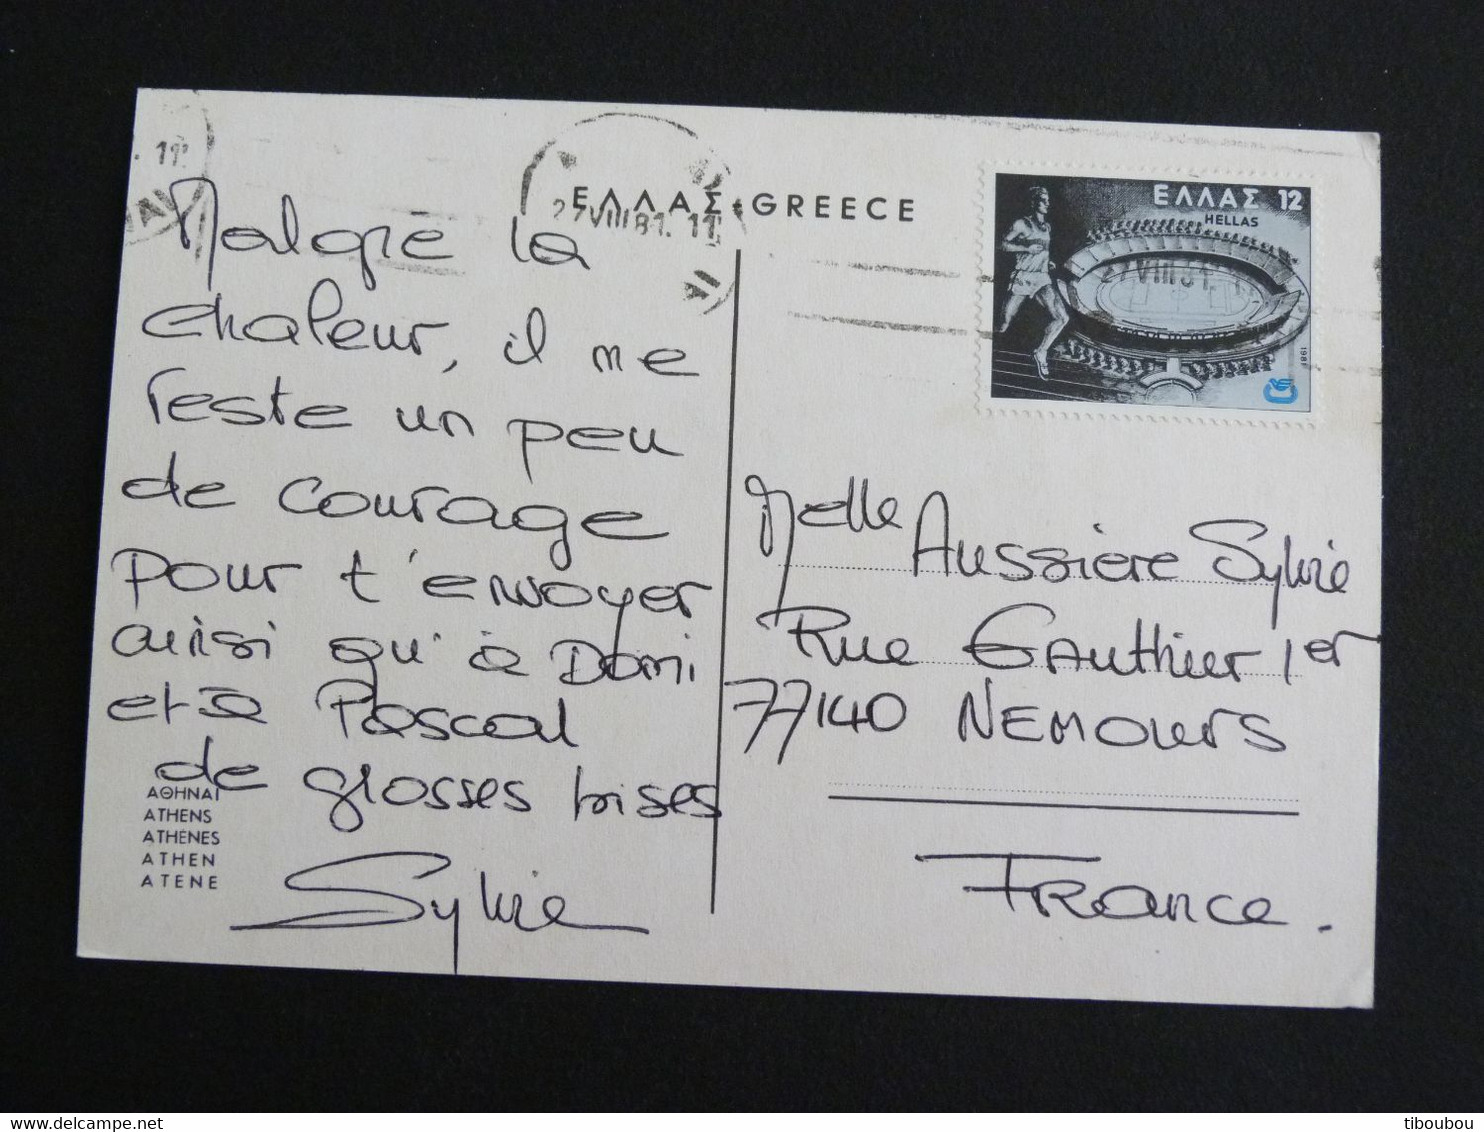 11
27 VIII 81. 11
ΕΛΛΑΣ • GREECE
ΕΛΛΑΣ 12
HELLAS
27 VIII 81. 11
1981
Malgré la
chaleur, il me
reste un peu
de courage
pour t'envoyer
ainsi qu'à Domi
et à Pascal
de grosses bises
Sylvie
ΑΘΗΝΑΙ
ATHENS
ATHÈNES
ATHEN
ATENE
Melle
Aussière Sylvie
Rue Gauthier 1er
77140 NEMOURS
FRance.
delcampe.net
tiboubou